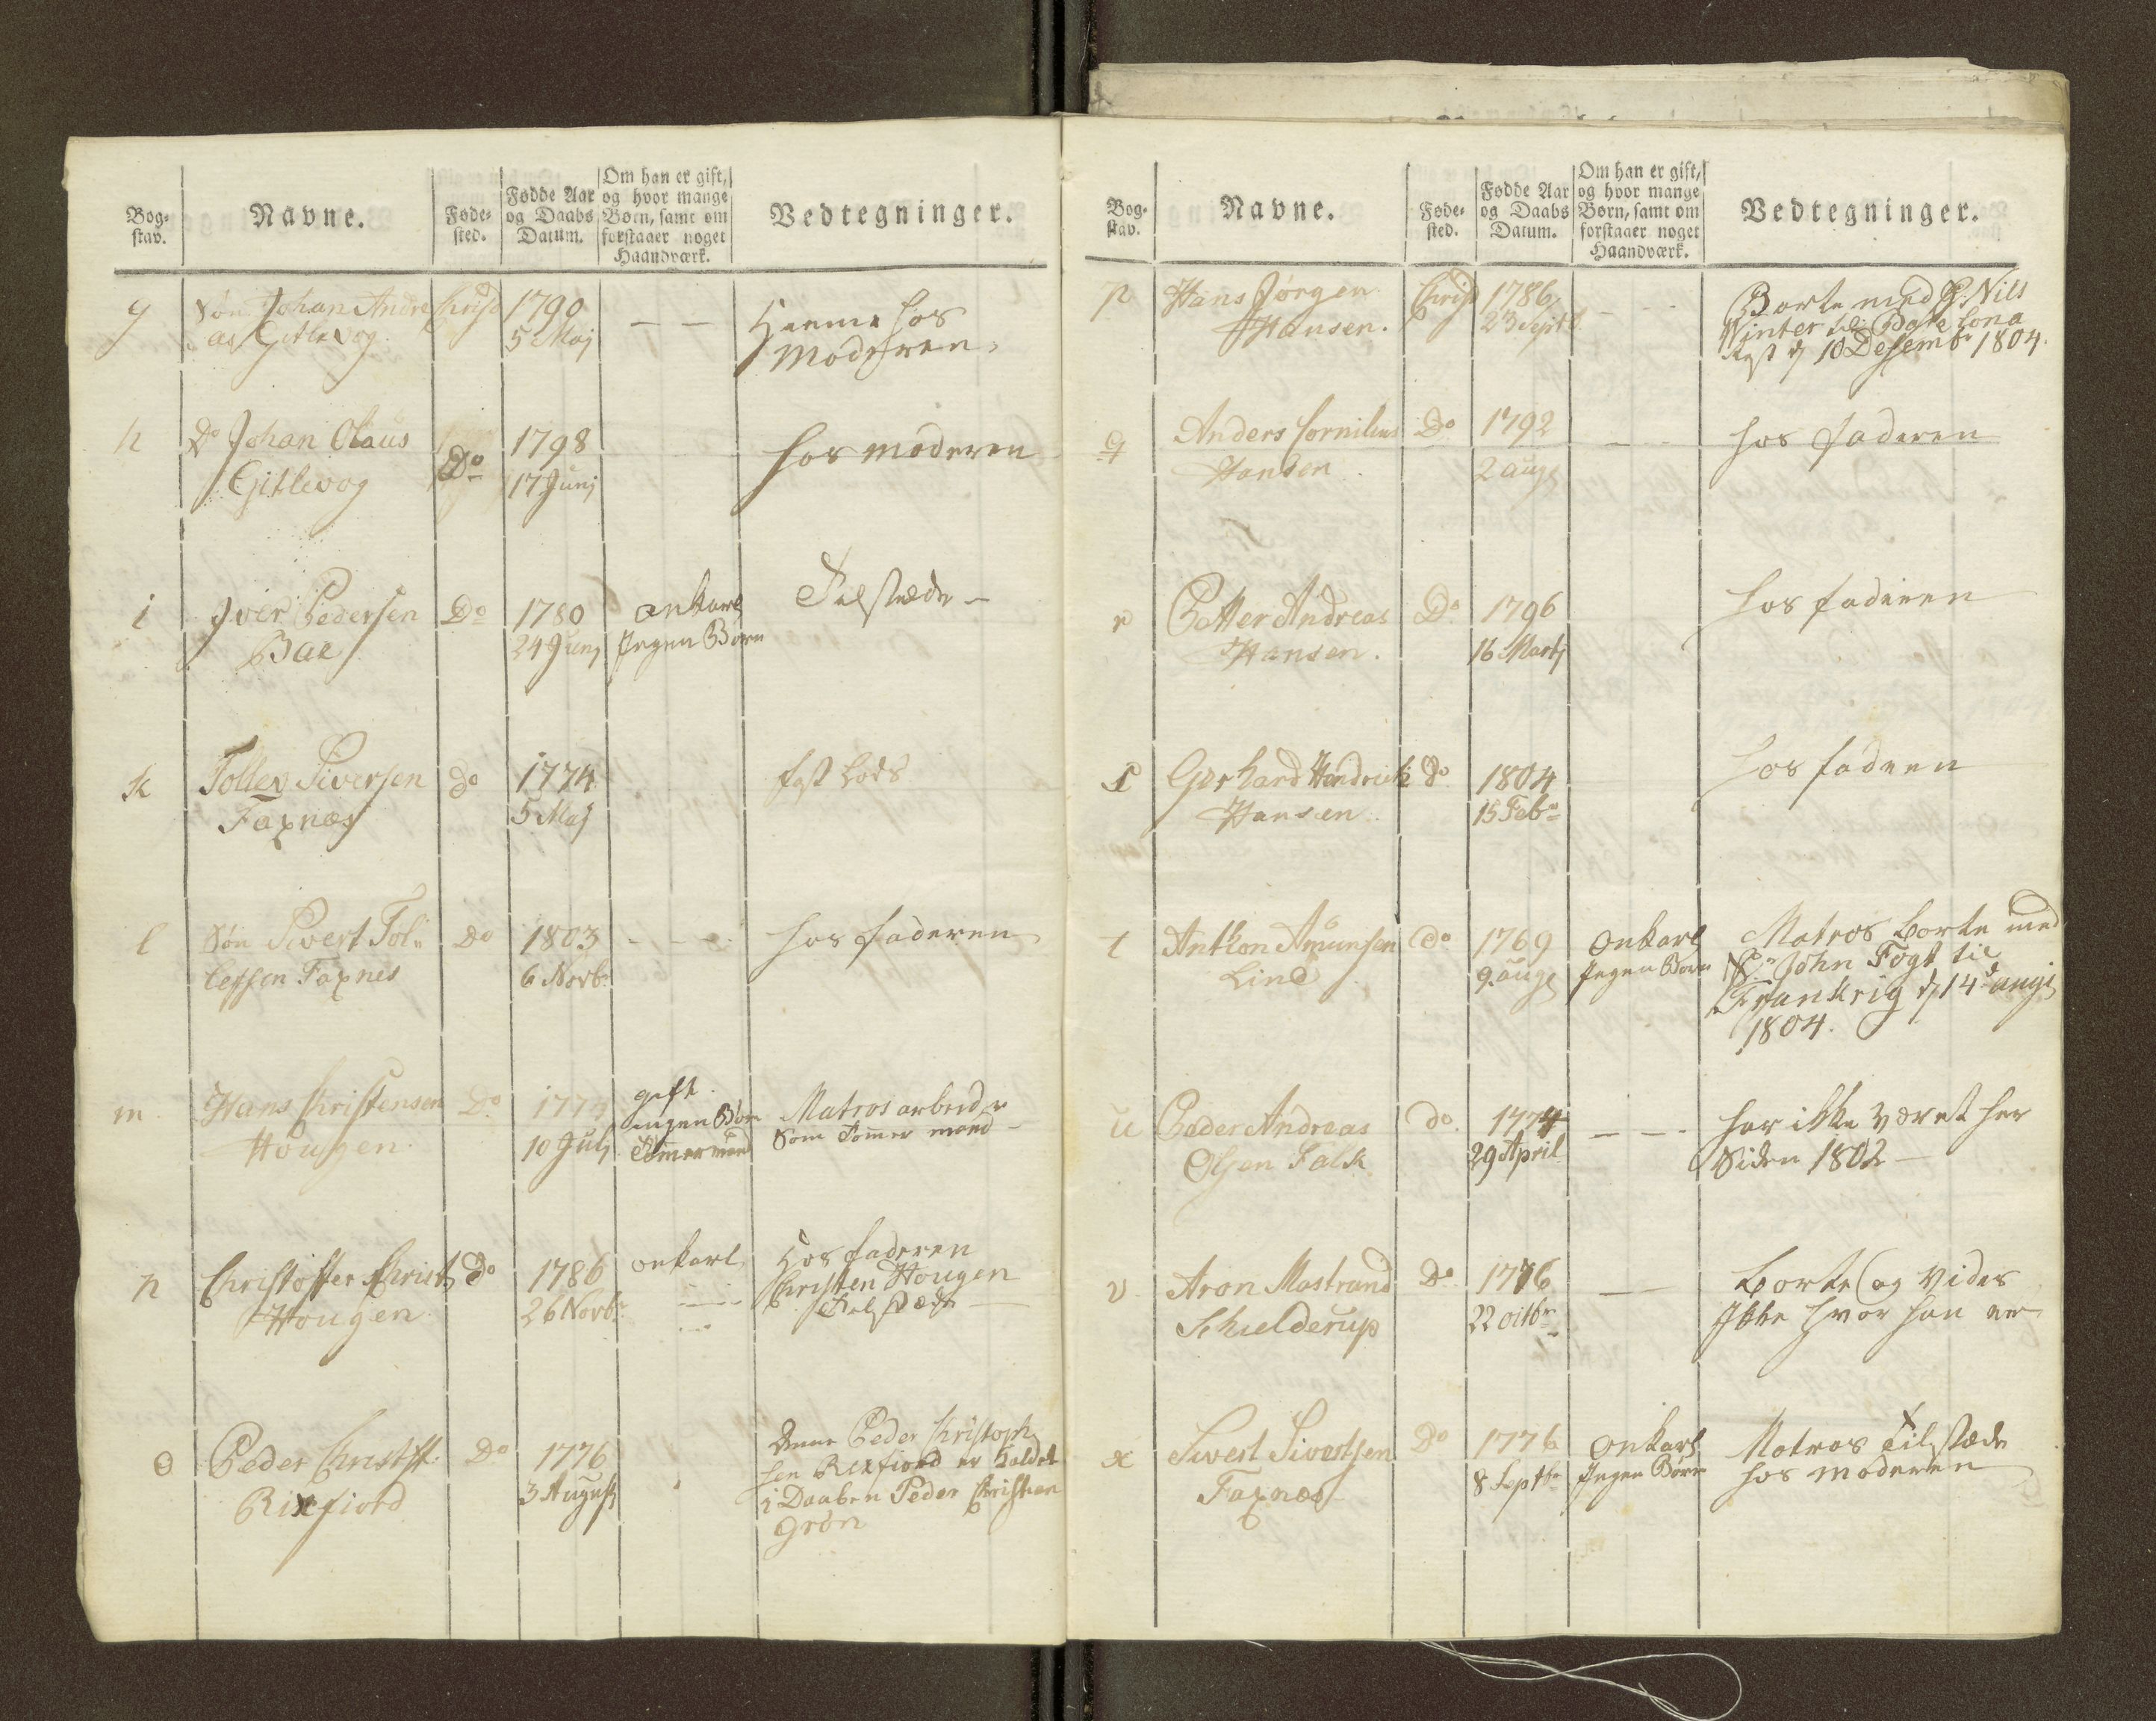 Bog-
stav.
Navne.
Føde-
sted.
Fødde Aar
og Daabs
Datum.
Om han er gift,
og hvor mange
Børn, samt om
forstaaer noget
Haandværk.
Vedtegninger.
g
Søn Johan Andre
as Gitlevog
Christ
1790
5 Maj
— —
Heeme hos
Moderen
h
Do Johan Olaus
Gitlevog
Do
1798
17 Junj
hos moderen
i
Iver Pedersen
Bae
Do
1780
24 Junj
onkarl
Ingen Børn
Tilstæde —
k
Tolle Siversen
Faxnæs
do
1774
5 Maj
fast Lods
l
Søn Sivert Tol-
lefsen Faxnes
Do
1803
6 Novbr
hos faderen
m
Hans Christensen
Hougen
Do
1774
10 Julj
gift
ingen Børn
Tømermand
Matros arbeider
som Tømermand —
n
Christoffer Christ
Hougen
Do
1786
26 Novbr
onkarl
Hos faderen
Christen Hougen
Tilstæde —
o
Peder Christoff:
Rixfiord
Do
1776
3 August
denne Peder Christoph
sen Rixfiord er kaldet
i Daaben Peder Christian
Grøn
Bog-
stav.
Navne.
Føde-
sted.
Fødde Aar
og Daabs
Datum.
Om han er gift,
og hvor mange
Børn, samt om
forstaaer noget
Haandværk.
Vedtegninger.
p
Hans Jørgen
Hansen.
Christ
1786
23 Septb
Borte med Nils
Winter til
d 10 Desembr 1804.
q
Anders Cornilius
Hansen
Do
1792
2 aug
hos faderen
r
Petter Andreas
Hansen.
Do
1796
16 Martj
hos faderen
s
Gerhard Hendrich
Hansen
do
1804
15 Febr
hos faderen
t
Anthon Amunsen
Lind
do
1769
9 aug
onkarl
Ingen Børn
Matros borte med
Sr John Fogt til
Frankrig d 14 augi
1804.
u
Peder Andreas
Olsen Falk
do
1774
29 April
— —
har ikke været her
siden 1802 —
v
Aron Mostrand
Schielderup
Do
1776
22 octbr
—
borte og vides
Ikke hvor han er
x
Sivert Sivertsen
Faxnæs
Do
1776
8 Septbr
onkarl
Ingen Børn
Matros Tilstæde
hos moderen